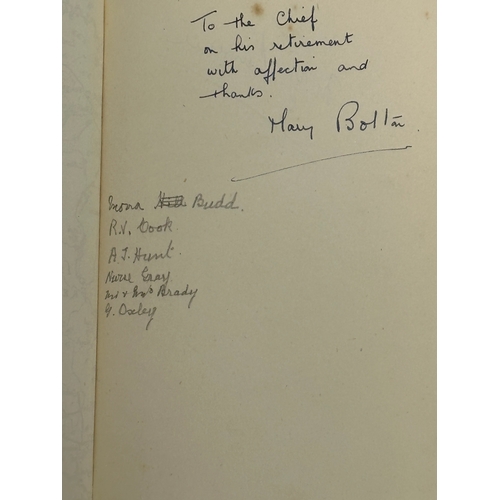 To the Chief
on his retirement
with affection and
thanks.
Mary Bolton
Budd.
R.V. Cook.
A.J. Hunt.
Nurse Gray.
Mr & Mrs Brady
G. Oxley